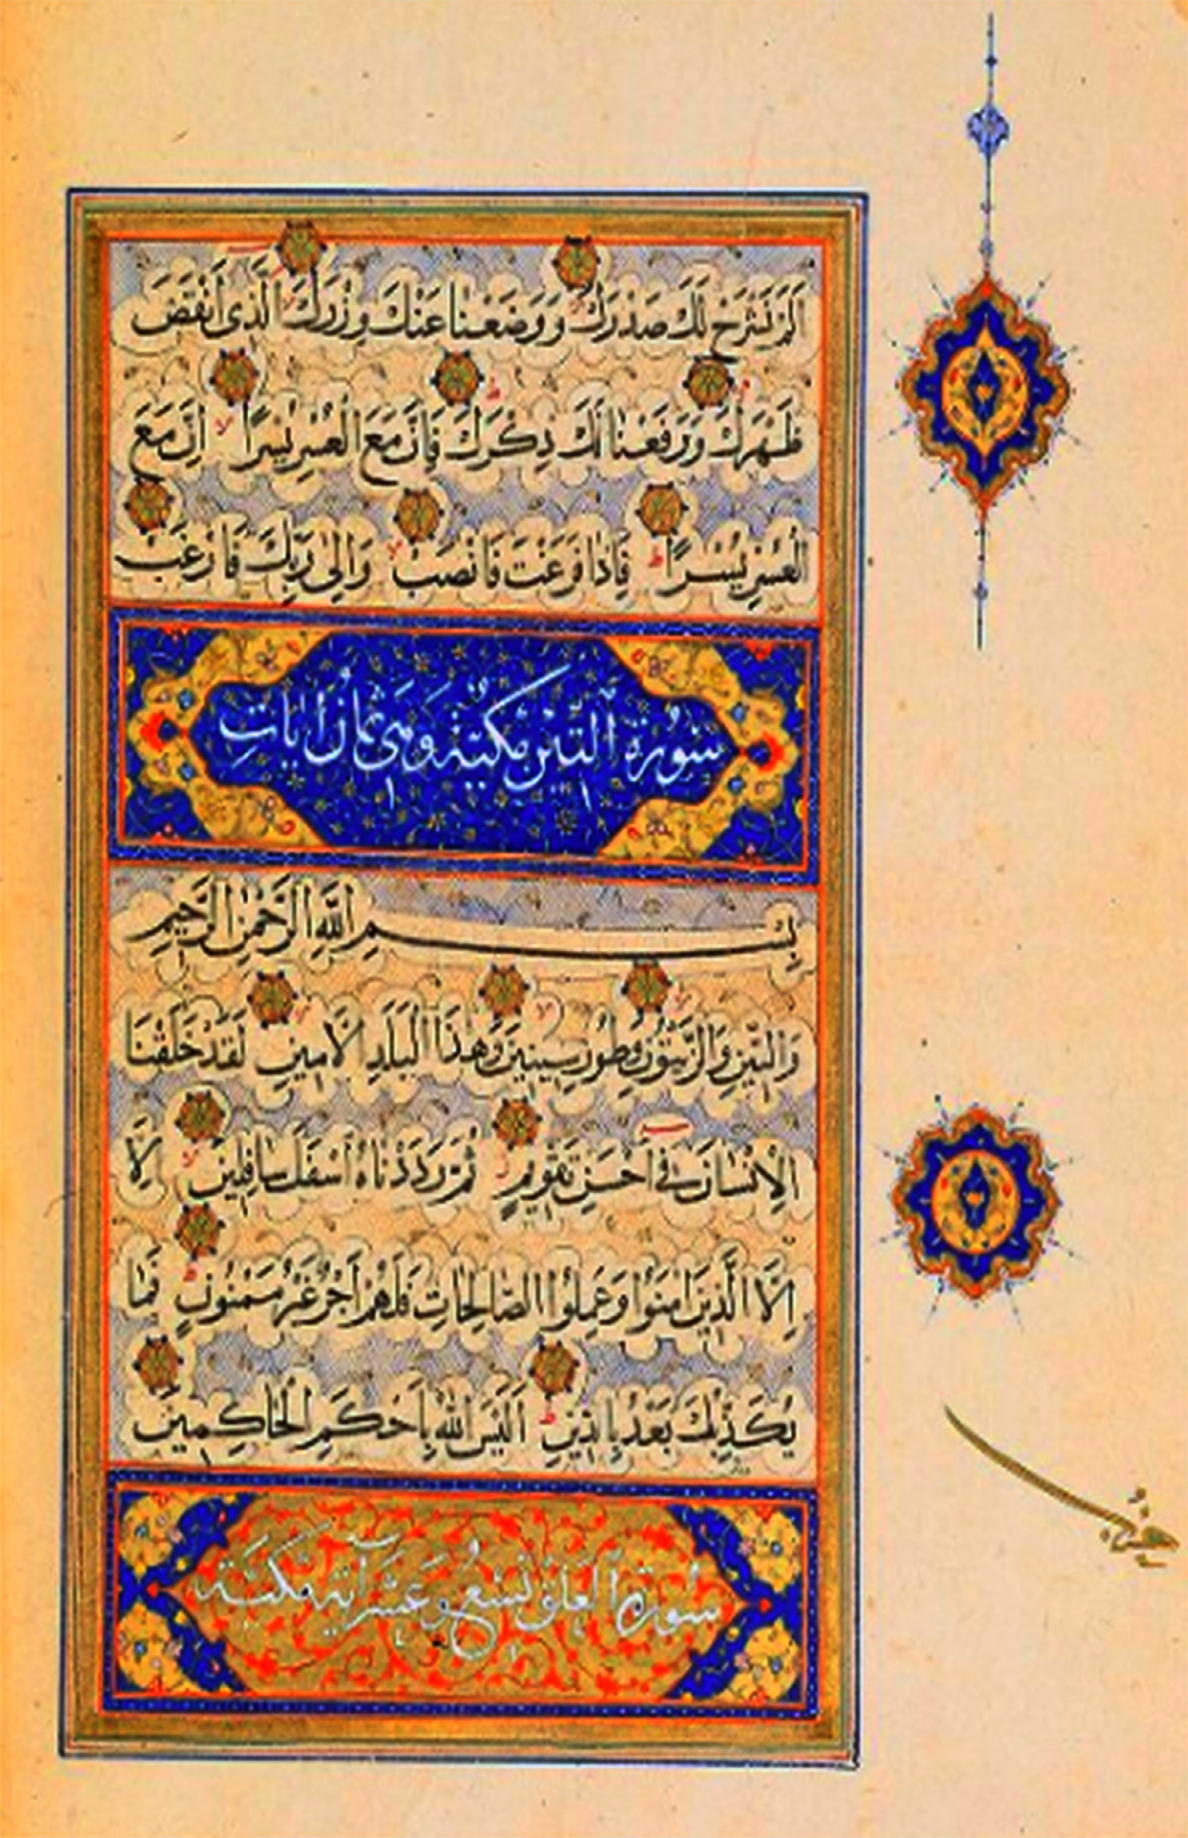 اَلَمْ نَشْرَحْ لَكَ صَدْرَكَ وَوَضَعْنَا عَنْكَ وِزْرَكَ الَّذِى اَنْقَضَ
ظَهْرَكَ وَرَفَعْنَا لَكَ ذِكْرَكَ فَاِنَّ مَعَ الْعُسْرِ يُسْرًا اِنَّ مَعَ
الْعُسْرِ يُسْرًا فَاِذَا فَرَغْتَ فَانْصَبْ وَاِلٰى رَبِّكَ فَارْغَبْ
سُورَةُ التِّينِ مَكِّيَّةٌ وَهِىَ ثَمَانُ اٰيَاتٍ
بِسْمِ اللّٰهِ الرَّحْمٰنِ الرَّحِيمِ
وَالتِّينِ وَالزَّيْتُونِ وَطُورِ سِينِينَ وَهٰذَا الْبَلَدِ الْاَمِينِ لَقَدْ خَلَقْنَا
الْاِنْسَانَ فِى اَحْسَنِ تَقْوِيمٍ ثُمَّ رَدَدْنَاهُ اَسْفَلَ سَافِلِينَ اِلَّا
اِلَّا الَّذِينَ اٰمَنُوا وَعَمِلُوا الصَّالِحَاتِ فَلَهُمْ اَجْرٌ غَيْرُ مَمْنُونٍ فَمَا
يُكَذِّبُكَ بَعْدُ بِالدِّينِ اَلَيْسَ اللّٰهُ بِاَحْكَمِ الْحَاكِمِينَ
سُورَةُ الْعَلَقِ تِسْعَ وَعَشَرَ اٰيَة مَكِّيَّة
حزب